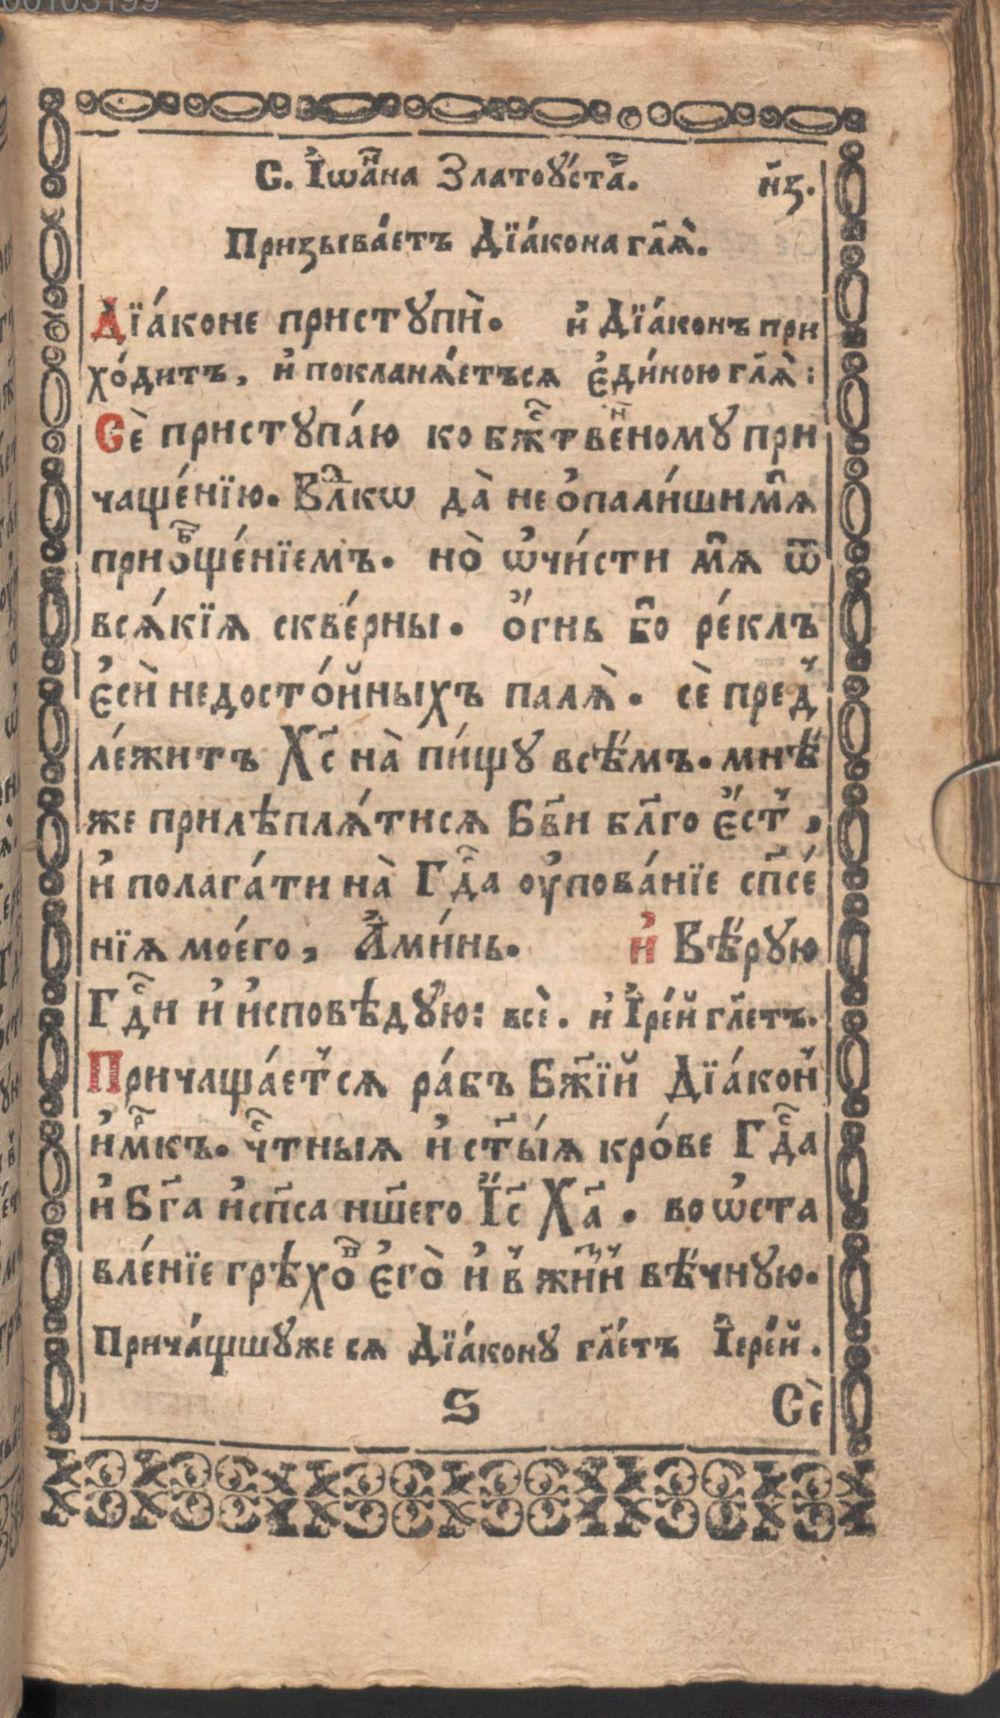 00103199
С. І҆ѡа́нна Златоꙋ́стаг҇. н҃з.
Призыва́етъ Дїа́кона гл҃ѧ̀.
Дїа́коне пристꙋпѝ. и҆ Дїа́конъ при
хо́дитъ, и҆ покланѧ́етъсѧ є҆ди́ною гл҃ѧ̀:
Сѐ пристꙋпа́ю ко бж҇твенномꙋ при
чаще́нїю. Влⷣкѡ да̀ не ѻ҆пали́ши мѧ̀
приѻбще́нїемъ. но̀ ѡ҆чи́сти мѧ̀ ѿ
всѧ́кїѧ скве́рны. ѻ҆́гнь бо̀ ре́клъ
є҆сѝ недосто́йныхъ палѧ̀. сѐ пред̾
ле́житъ Хс҃ на̀ пи́щꙋ всѣ́мъ. мнѣ́
же прилѣплѧ́тисѧ Бв҃и бл҃го є҆́ст̾,
и҆ полага́ти на̀ Гдⷭ҇а ѹ҆пова́нїе сп҃се́
нїѧ моего̀, А҆ми́нь. и҆ Вѣ́рꙋю
Гдⷭ҇и и҆ и҆сповѣ́дꙋю: всѐ. и҆ І҆ере́й гл҃етъ.
Причаща́ет̾сѧ ра́бъ Бж҃їй Дїа́кон̾
и҆м҇къ. ч҇тныѧ и҆ ст҃ы́ѧ кро́ве Гдⷭ҇а
и҆ Бг҃а и҆ сп҃са нш҃его І҆с҃ Ха҃. во ѡ҆ста
вле́нїе грѣхо́в є҆гѡ̀ и҆ в̾ жи́зн̾ вѣ́чнꙋю.
Прича́щшꙋже сѧ Дїа́конꙋ гл҃етъ І҆ере́й.
Ѕ Сѐ